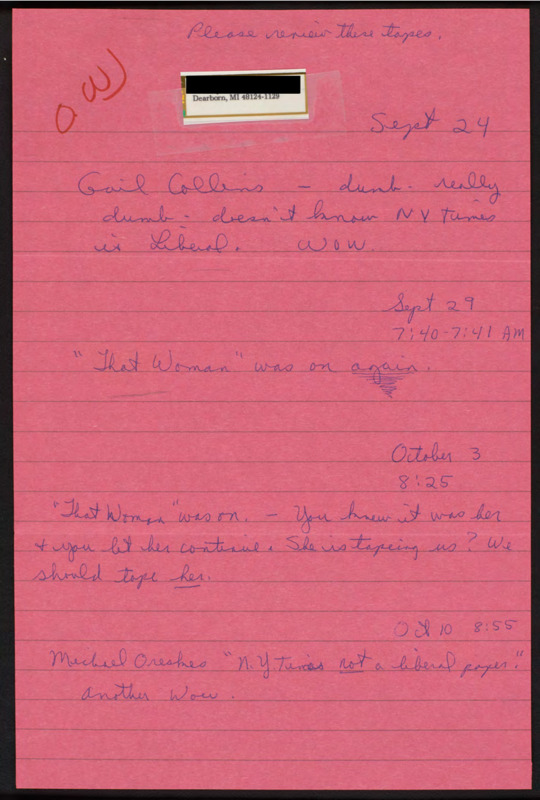 Please review these tapes.
Dearborn, MI 48124-1129
Sept 24
Gail Collins - dumb - really
dumb - doesn't know NY Times
is Liberal. WOW.
Sept 29
7:40-7:41 AM
"That Woman" was on again.
October 3
8:25
"That Woman" was on. - You knew it was her
& you let her continue. She is tapeing us? We
should tape her.
Oct 10 8:55
Michael Oreskes "N.Y Times not a liberal paper."
another Wow.